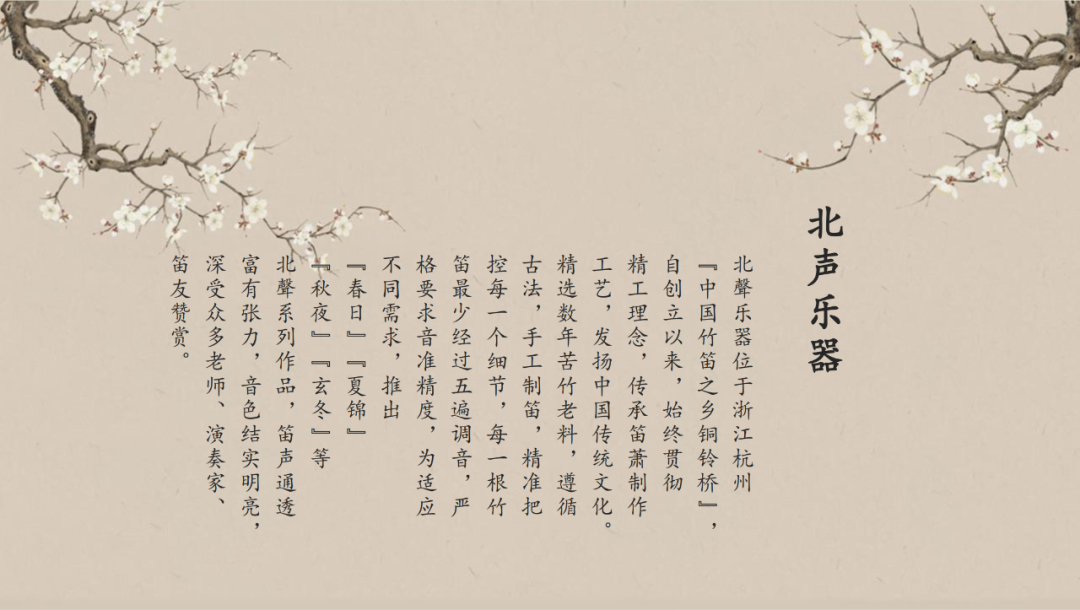 北声乐器
北聲乐器位于浙江杭州
『中国竹笛之乡铜铃桥』，
自创立以来，始终贯彻
精工理念，传承笛萧制作
工艺，发扬中国传统文化。
精选数年苦竹老料，遵循
古法，手工制笛，精准把
控每一个细节，每一根竹
笛最少经过五遍调音，严
格要求音准精度，为适应
不同需求，推出
『春日』『夏锦』
『秋夜』『玄冬』等
北聲系列作品，笛声通透
富有张力，音色结实明亮，
深受众多老师、演奏家、
笛友赞赏。